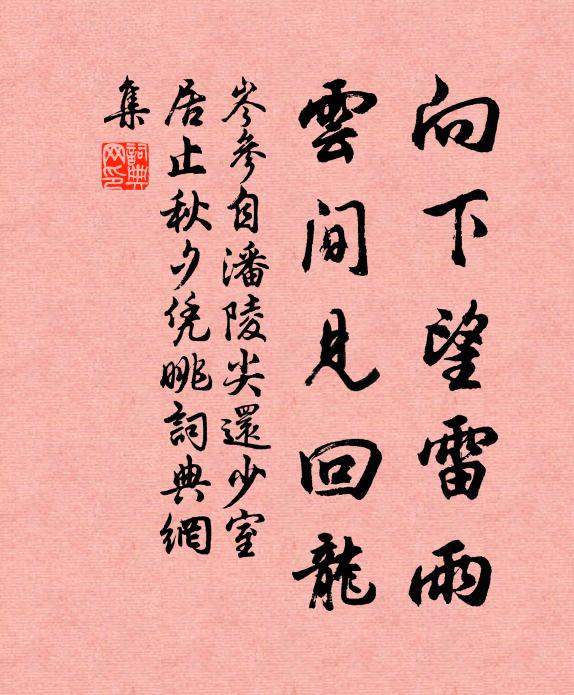 向下望雷雨
雲間見回龍
岑參自潘陵尖還少室
居止秋夕凭眺詞典網
集
詞典网印